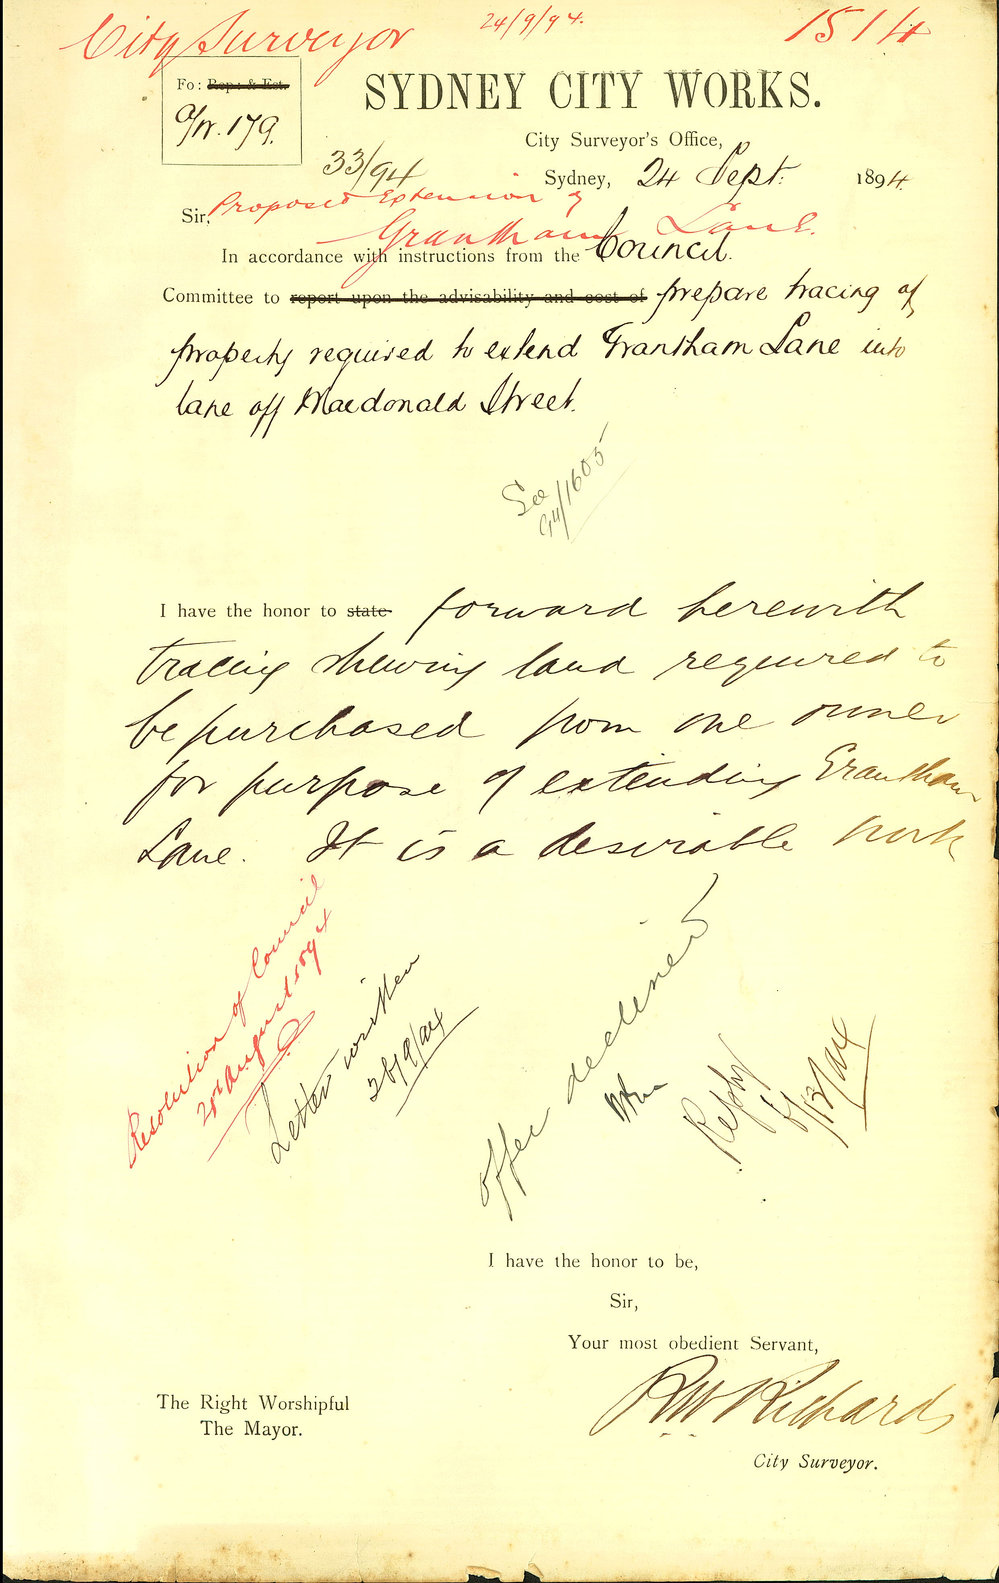 City Surveyor
24/9/94.
1514
Fo: Rep: & Est.
O/W. 179.
SYDNEY CITY WORKS.
City Surveyor's Office,
33/94
Sydney, 24 Sept: 1894.
Sir,
Proposed Extension of
Grantham Lane.
In accordance with instructions from the Council.
Committee to report upon the advisability and cost of prepare tracing of
property required to extend Grantham Lane into
lane off Macdonald Street.
See
94/1605
I have the honor to state forward herewith
tracing shewing land required to
be purchased from one owner
for purpose of extending Grantham
Lane. It is a desirable work
Resolution of Council
August 1894
Letter written
28/9/94
Offer declined
Reply
/12/94
I have the honor to be,
Sir,
Your most obedient Servant,
RW Richards
City Surveyor.
The Right Worshipful
The Mayor.